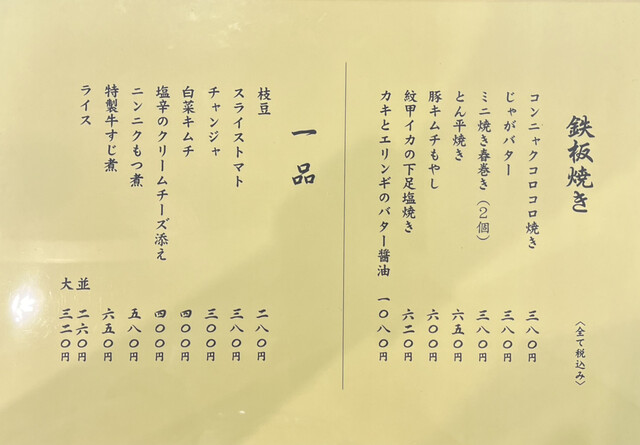 鉄板焼き
〈全て税込み〉
コンニャクコロコロ焼き 三八〇円
じゃがバター 三八〇円
ミニ焼き春巻き（２個） 三八〇円
とん平焼き 六五〇円
豚キムチもやし 六〇〇円
紋甲イカの下足塩焼き 六二〇円
カキとエリンギのバター醤油 一〇八〇円
一品
枝豆 二八〇円
スライストマト 三八〇円
チャンジャ 三〇〇円
白菜キムチ 四〇〇円
塩辛のクリームチーズ添え 四〇〇円
ニンニクもつ煮 五八〇円
特製牛すじ煮 六五〇円
ライス 並 二六〇円
大 三二〇円